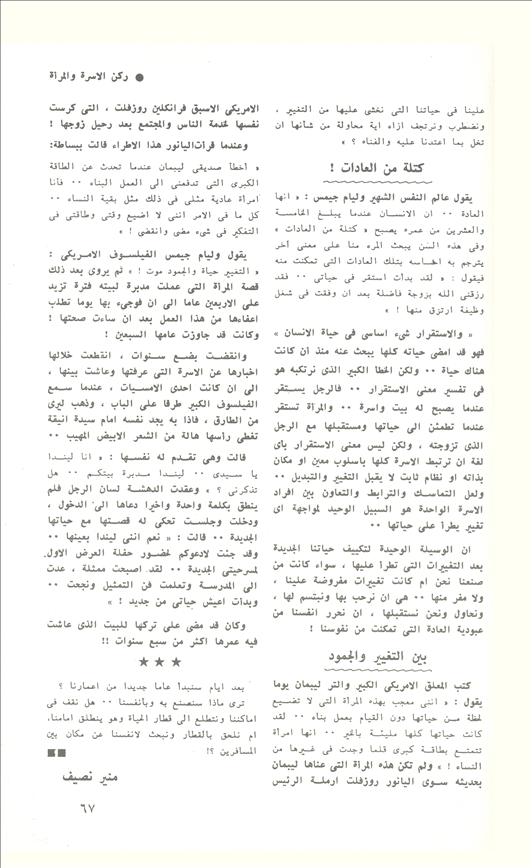 ركن الاسرة والمرأة ●
علينا فى حياتنا التى نخشى عليها من التغيير ،
ونضطرب ونرتجف ازاء اية محاولة من شأنها ان
تخل بما اعتدنا عليه والفناء ؟ »
كتلة من العادات !
يقول عالم النفس الشهير وليام جيمس : « انها
العادة ٠٠ ان الانسان عندما يبلغ الخامسة
والعشرين من عمره يصبح « كتلة من العادات »
وفى هذه السن يبحث المرء منا على معنى آخر
يترجم به احساسه بتلك العادات التى تمكنت منه
فيقول : « لقد بدأت استقر فى حياتى ٠٠ فقد
رزقنى الله بزوجة فاضلة بعد ان وفقت فى شغل
وظيفة ارتزق منها ! »
« والاستقرار شىء اساسى فى حياة الانسان »
فهو قد امضى حياته كلها يبحث عنه منذ أن كانت
هناك حياة ٠٠ ولكن الخطا الكبير الذى نرتكبه هو
فى تفسير معنى الاستقرار ٠٠ فالرجل يستقر
عندما يصبح له بيت واسرة ٠٠ والمرأة تستقر
عندما تطمئن الى حياتها ومستقبلها مع الرجل
الذى تزوجته ، ولكن ليس معنى الاستقرار بأى
لغة ان ترتبط الاسرة كلها باسلوب معين او مكان
بذاته او نظام ثابت لا يقبل التغيير والتبديل ٠٠
ولعل التماسك والترابط والتعاون بين افراد
الاسرة الواحدة هو السبيل الوحيد لمواجهة اى
تغيير يطرأ على حياتها ٠٠
ان الوسيلة الوحيدة لتكييف حياتنا الجديدة
بعد التغييرات التى تطرأ عليها ، سواء كانت من
صنعنا نحن ام كانت تغييرات مفروضة علينا ،
ولا مفر منها ٠٠ هى ان نرحب بها ونبتسم لها ،
ونحاول ونحن نستقبلها ، ان نحرر انفسنا من
عبودية العادة التى تمكنت من نفوسنا !
بين التغيير والجمود
كتب المعلق الامريكى الكبير والتر ليبمان يوما
يقول : « اننى معجب بهذه المرأة التى لا تضيع
لحظة من حياتها دون القيام بعمل بناء ٠٠ لقد
كانت حياتها كلها مليئة بالخير ٠٠ انها امرأة
تتمتع بطاقة كبرى قلما وجدت فى غيرها من
النساء ! » ولم تكن هذه المرأة التى عناها ليبمان
بحديثه سوى اليانور روزفلت ارملة الرئيس
الامريكى الاسبق فرانكلين روزفلت ، التى كرست
نفسها لخدمة الناس والمجتمع بعد رحيل زوجها !
وعندما قرأت اليانور هذا الاطراء قالت ببساطة:
« أخطأ صديقى ليبمان عندما تحدث عن الطاقة
الكبرى التى تدفعنى الى العمل البناء ٠٠ فأنا
امرأة عادية مثلى فى ذلك مثل بقية النساء ٠٠
كل ما فى الامر اننى لا اضيع وقتى وطاقتى فى
التفكير فى شىء مضى وانقضى ! »
يقول وليام جيمس الفيلسوف الامريكى :
« التغيير حياة والجمود موت ! » ثم يروى بعد ذلك
قصة المرأة التى عملت مدبرة لبيته فترة تزيد
على الاربعين عاما الى ان فوجىء بها يوما تطلب
اعفاءها من هذا العمل بعد ان ساءت صحتها !
وكانت قد جاوزت عامها السبعين !
وانقضت بضع سنوات ، انقطعت خلالها
اخبارها عن الاسرة التى عرفتها وعاشت بينها ،
الى ان كانت احدى الامسيات ، عندما سمع
الفيلسوف الكبير طرقا على الباب ، وذهب ليرى
من الطارق ، فاذا به يجد نفسه امام سيدة انيقة
تغطى رأسها هالة من الشعر الابيض المهيب ٠٠
قالت وهى تقدم له نفسها : « انا ليندا
يا سيدى ٠٠ ليندا مدبرة بيتكم ٠٠ هل
تذكرنى ؟ » وعقدت الدهشة لسان الرجل فلم
ينطق بكلمة واحدة واخيرا دعاها الى الدخول ،
ودخلت وجلست تحكى له قصتها مع حياتها
الجديدة ٠٠ قالت : « نعم اننى ليندا بعينها ٠٠
وقد جئت لادعوكم لحضور حفلة العرض الاول
لمسرحيتى الجديدة ٠٠ لقد اصبحت ممثلة ، عدت
الى المدرسة وتعلمت فن التمثيل ونجحت ٠٠
وبدأت اعيش حياتى من جديد ! »
وكان قد مضى على تركها للبيت الذى عاشت
فيه عمرها اكثر من سبع سنوات !!
★ ★ ★
بعد ايام سنبدأ عاما جديدا من اعمارنا ؟
ترى ماذا سنصنع به وبأنفسنا ٠٠ هل نقف فى
اماكننا ونتطلع الى قطار الحياة وهو ينطلق امامنا،
ام نلحق بالقطار ونبحث لانفسنا عن مكان بين
المسافرين ؟!
منير نصيف
٦٧